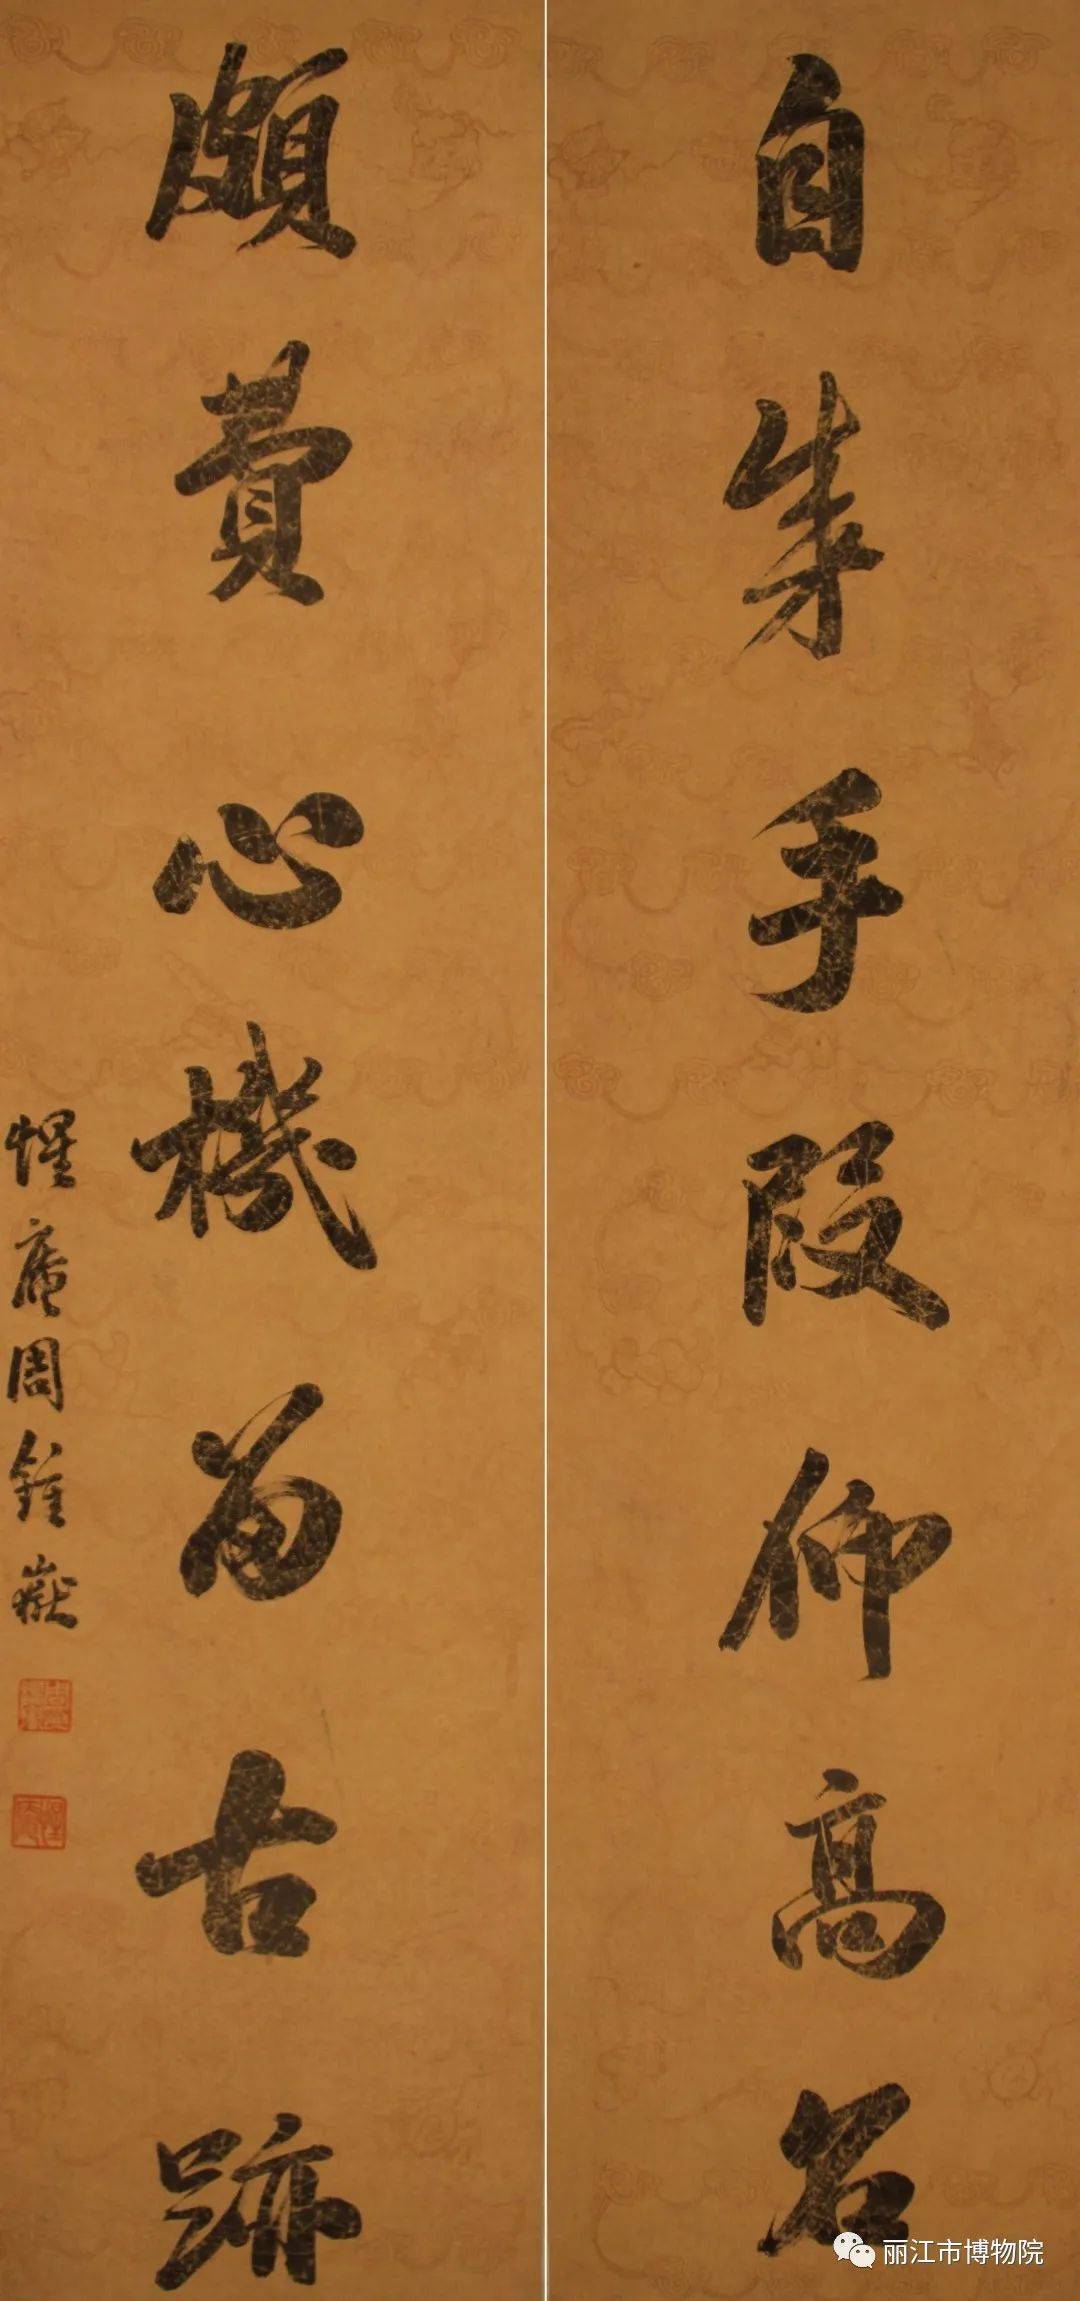 自成手段仰高名
頗費心機留古跡
惺庵周鍾嶽
丽江市博物院